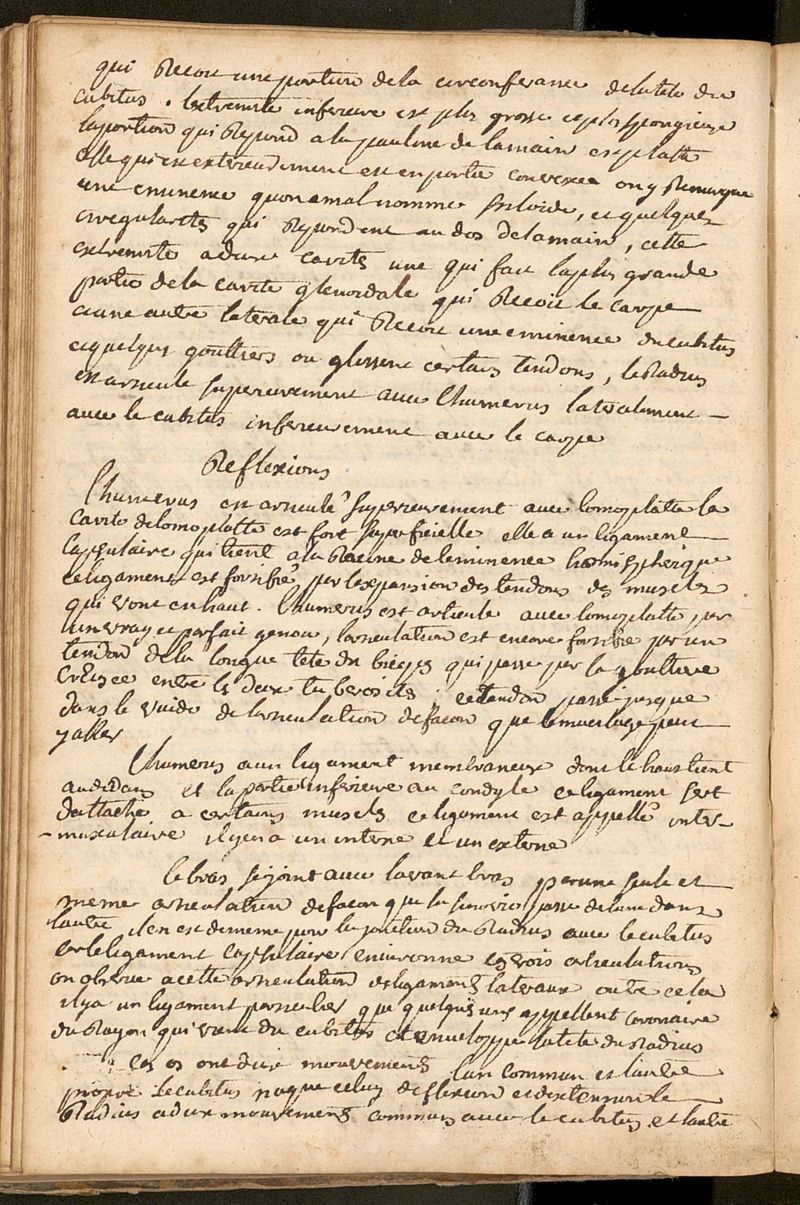 qui Recoit une portion de la circonferance de la tete du
cubitus . lextremite inferieure est plus grosse et plus spongieuse
la portion qui Repond a la paulme de la main est platte
celle qui est exterieurement est en partie convexe on y Remarque
une eminence quon a mal nomme stiloide, et quelques
irregularités qui Repondent au dos de la main, cette
extremite a deux cavités une qui fait la plus grande
partie de la cavité glenoidale qui Recoit le carpe
et une autre laterale qui Recoit une eminence du cubitus
et quelques gouttiers ou glissent certains tendons, le Radius
est articule superieurement avec lhumerus lateralement –
avec le cubitus inferieurement avec le carpe
Reflexions
lhumerus est articulé superieurement avec lomoplatte la
cavité de lomoplatte est fort superficielle elle a un ligament
capsulaire qui tient a la Racine de leminence hemispherique
ce ligament est fortifié par lexpansion des tendons des muscles
qui vont en haut . lhumerus est articule avec lomoplatte par
un vray et parfait genou, larticulation est encore fortifie par un
tendon de la longue tete du biceps qui passe par la goutiere
creusee entre les deux tuberosités . ce tendon passe jusque
dans le vuide de larticulation de facon que le mucilage peut
y aller
lhumerus a un ligament membraneux dont le haut tient
au dedans et la partie inferieure au condyle ce ligament sert
dattache a certains muscles ce ligament est appellé inter-
-musculaire il y en a un interne et un externe
le bras se joint avec lavant bras par une seule et
meme articulation de facon que la sinovie passe de lune dans
lautre il en est de meme pour la jonction du Radius avec le cubitus
car le ligament capsulaire environne ces trois articulations
on observe a cette articulation des ligaments lateraux outre cela
il y a un ligament particulier que quelques uns appellent coronaire
du Rayon qui vient du cubitus et enveloppe la tete du Radius
ces os ont deux mouvements lun commun et lautre
propre le cubitus na que celuy de flexion et dextension le
Radius a deux mouvements communs avec le cubitus et lautre